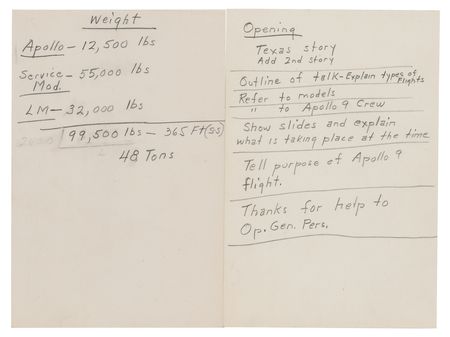 Weight
Apollo - 12,500 lbs
Service - 55,000 lbs
Mod.
LM - 32,000 lbs
99,500 lbs - 365 Ft (SS)
48 Tons
Opening
Texas story
Add 2nd story
Outline of talk - Explain types of
flights
Refer to models
" to Apollo 9 Crew
Show slides and explain
what is taking place at the time
Tell purpose of Apollo 9
flight.
Thanks for help to
Op. Gen. Pers.